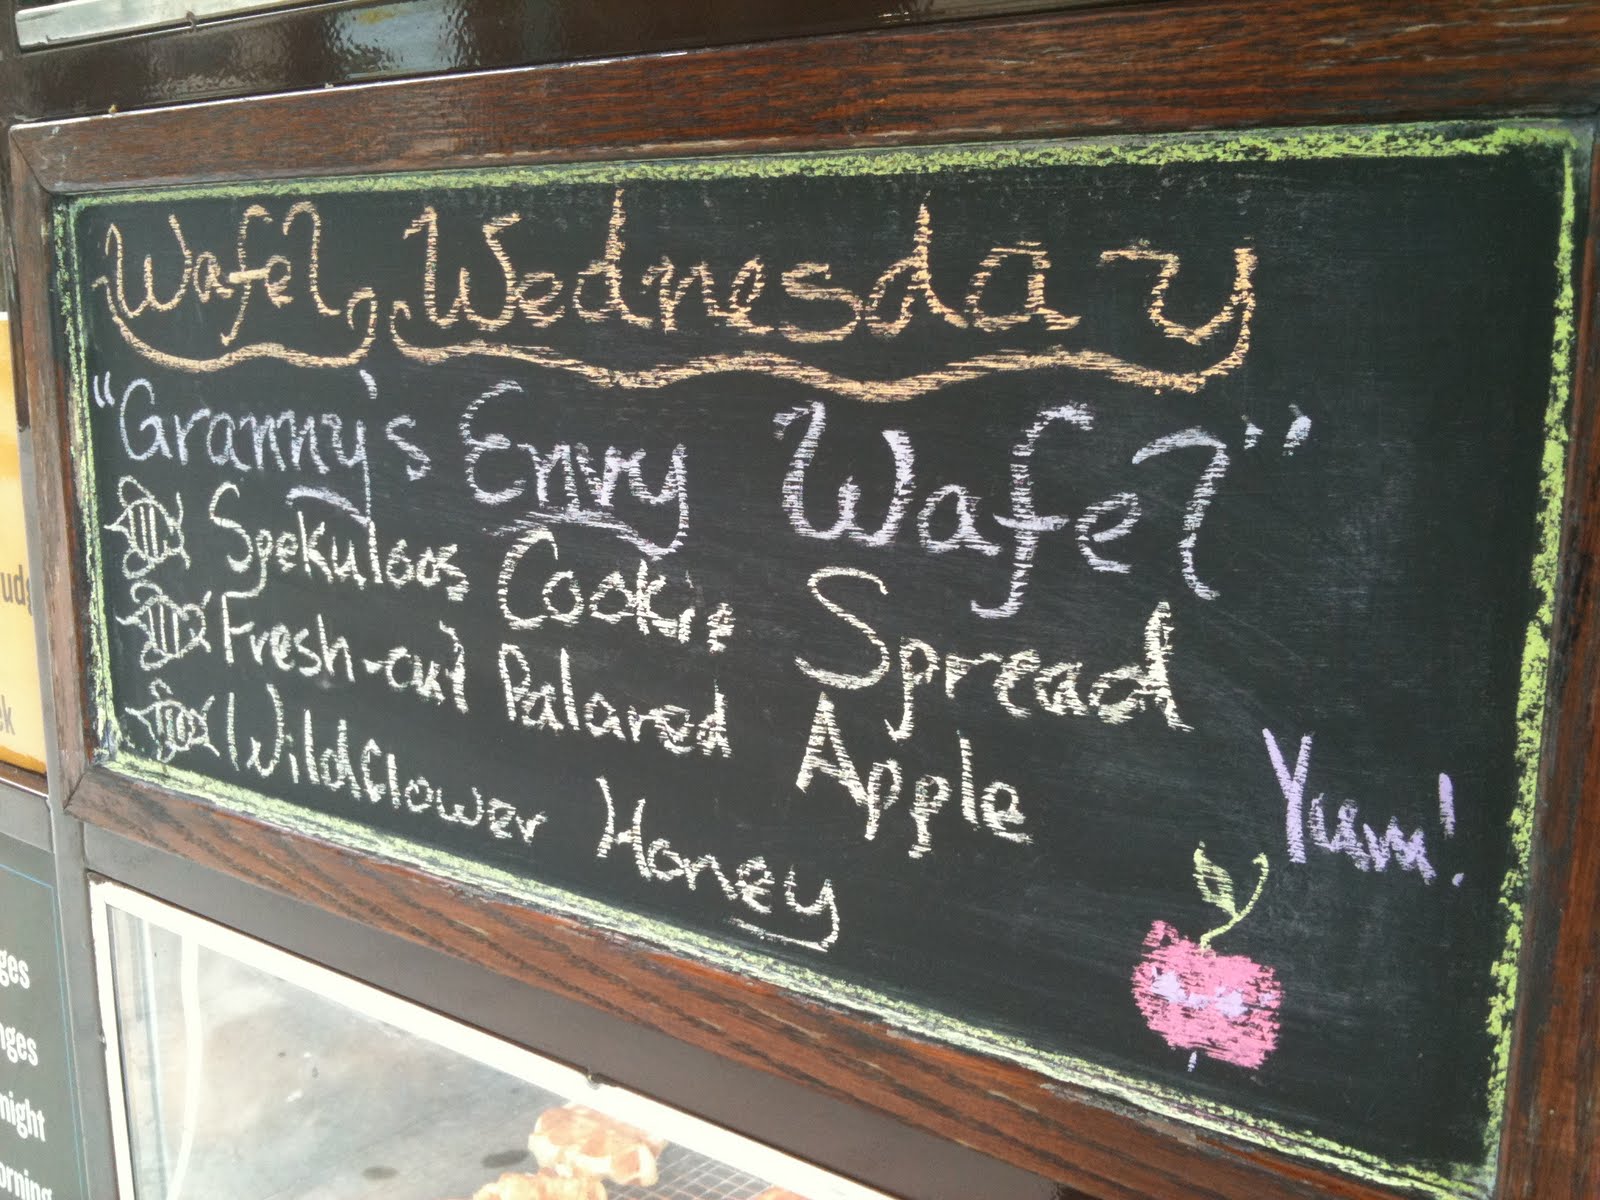 Wafel Wednesday
"Granny's Envy Wafel"
Spekuloos Cookie Spread
Fresh-cut Palared Apple
Wildflower Honey
Yum!
ges
nges
night
orning
ek